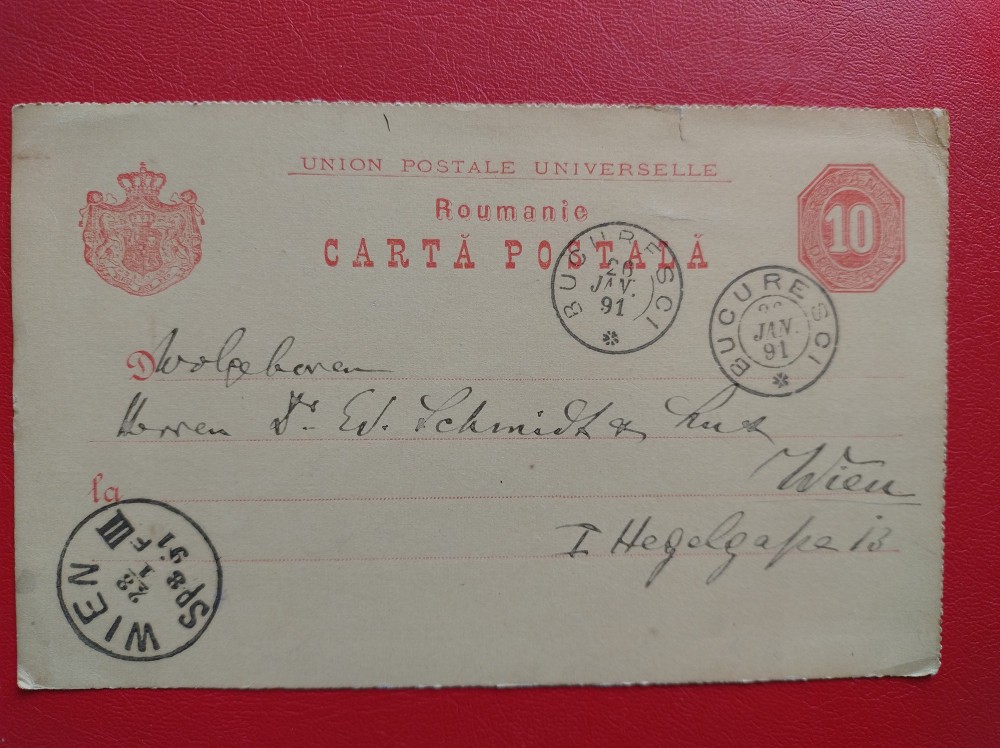 UNION POSTALE UNIVERSELLE
Roumanie
CARTĂ POSTALĂ
10
BUCURESCI
JAN.
91
BUCURESCI
JAN.
91
D
Wolgeboren
Herren Dr. Ed. Schmidt &
Wien
la
I Hegelgasse 13
WIEN
III
91